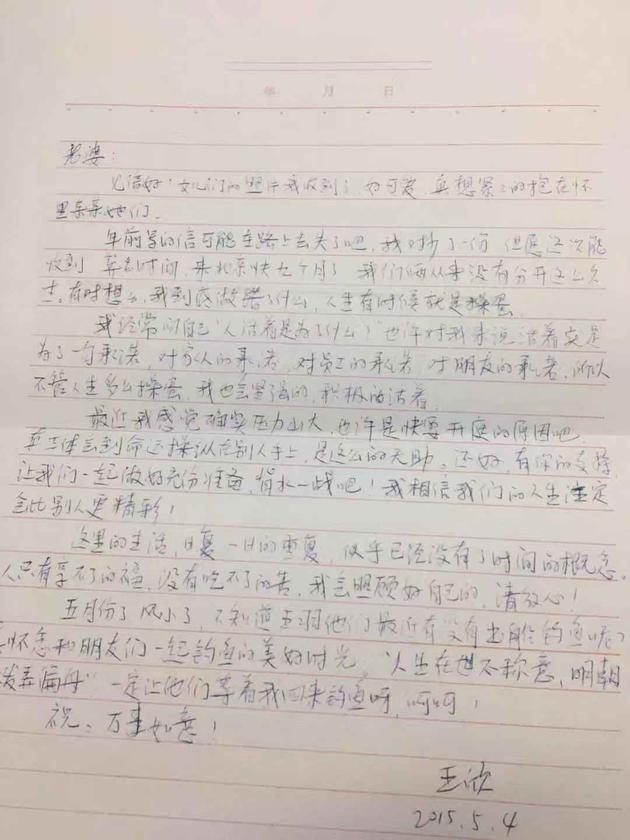 年 月 日
老婆：
见信好！女儿们的照片我收到了，好可爱，真想紧紧的抱在怀
里亲亲她们。
年前写的信可能在路上丢失了吧，我又抄了一份，但愿这次能
收到。算起时间，来北京快九个月了，我们俩从来没有分开这么久
过。有时想想，我到底做错了什么，人生有时候就是操蛋。
我经常问自己“人活着是为了什么？”也许对我来说活着就是
为了一句承诺，对家人的承诺，对员工的承诺，对朋友的承诺，所以
不管人生多么操蛋，我也会坚强的，积极的活着。
最近我感觉确实压力山大，也许是快要开庭的原因吧。
真正体会到命运操纵在别人手上，是这么的无助。还好，有你的支持，
让我们一起做好充份准备，背水一战吧！我相信我们的人生注定
会比别人更精彩！
这里的生活，日复一日的重复，似乎已经没有了时间的概念。
人只有享不了的福，没有吃不了的苦，我会照顾好自己的，请放心！
五月份了，风小了，不知道王羽他们最近有没有出船钓鱼呢？
怀念和朋友们一起钓鱼的美好时光，“人生在世不称意，明朝
散发弄扁舟”一定让他们等着我回来钓鱼呀，呵呵！
祝：万事如意！
王欣
2015.5.4